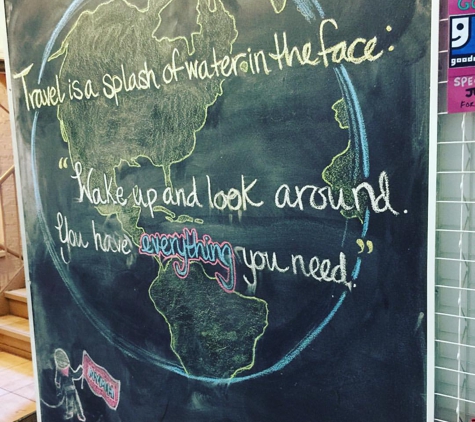 Travel is a splash of water in the face:
"Wake up and look around.
You have everything you need."
g
goodw
SPE